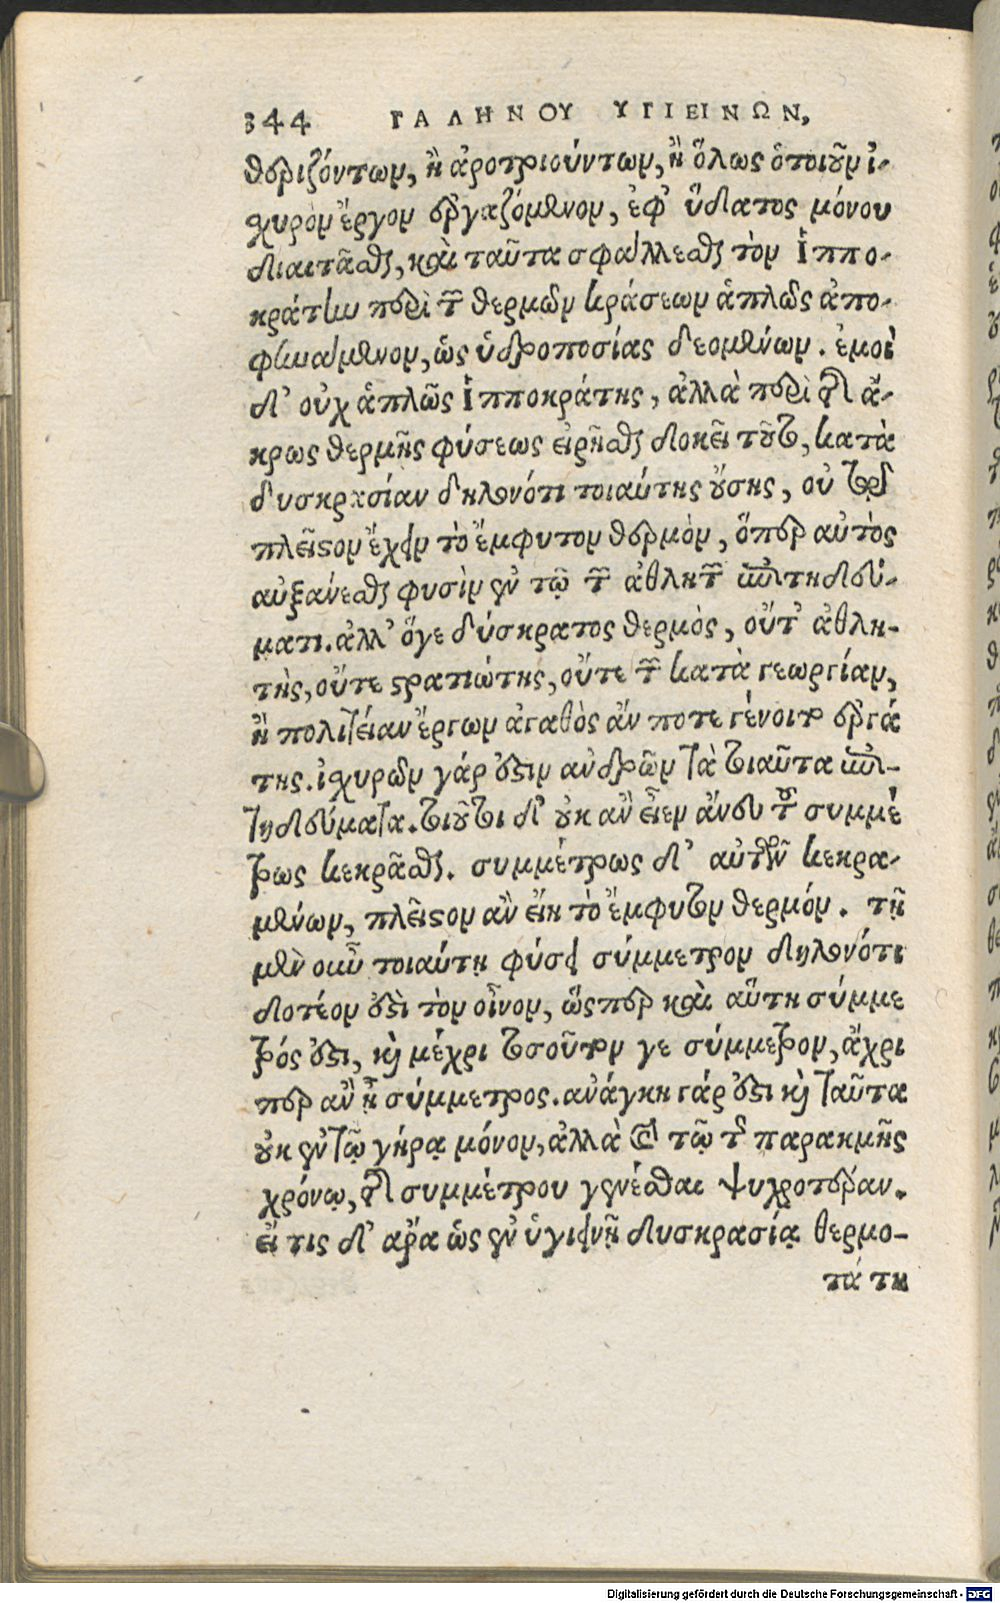 344 ΓΑΛΗΝΟΥ ΥΓΙΕΙΝΩΝ,
θεριζόντων, ἢ ἀροτριούντων, ἢ ὅλως ὁτιοῦν ἰ-
χυρὸν ἔργον ἐργαζόμενον, ἐφ᾽ ὕδατος μόνου
διαιτᾶσθαι, καὶ ταῦτα σφάλλεσθαι τὸν Ἱππο-
κράτην περὶ τῶν θερμῶν κράσεων ἁπλῶς ἀπο-
φηνάμενον, ὡς ὑδροποσίας δεομένων. ἐμοὶ
δ᾽ οὐχ ἁπλῶς Ἱπποκράτης, ἀλλὰ περὶ τῆς ἄ-
κρως θερμῆς φύσεως εἰρῆσθαι δοκεῖ τοῦτο, κατὰ
δυσκρασίαν δηλονότι τοιαύτης οὔσης, οὐ τῷ
πλεῖστον ἔχειν τὸ ἔμφυτον θερμὸν, ὅπερ αὐτὸς
αὐξάνεσθαι φησὶν ἐν τῷ τῶν ἀθλητῶν ἐπιτηδεύ-
ματι. ἀλλ᾽ ὅγε δύσκρατος θερμὸς, οὔτ᾽ ἀθλη-
τὴς, οὔτε στρατιώτης, οὔτε τῶν κατὰ γεωργίαν,
ἢ πολιτείαν ἔργων ἀγαθὸς ἄν ποτε γένοιτο ἐργά
της. ἰχυρῶν γάρ ἐστιν ἀνδρῶν τὰ τοιαῦτα ἐπι-
τηδεύματα. τοιοῦτοι δ᾽ οὐκ ἂν εἶεν ἄνευ τοῦ συμμέ
τρως κεκρᾶσθαι. συμμέτρως δ᾽ αὐτῶν κεκρα-
μένων, πλεῖστον ἂν εἴη τὸ ἔμφυτον θερμόν. τῇ
μὲν οὖν τοιαύτῃ φύσει σύμμετρον δηλονότι
δοτέον ἐστὶ τὸν οἶνον, ὥσπερ καὶ αὕτη σύμμε
τρός ἐστι, καὶ μέχρι τοσοῦτον γε σύμμετρον, ἄχρι
περ ἂν ᾖ σύμμετρος. ἀνάγκη γάρ ἐστι καὶ ταῦτα
οὐκ ἐν τῷ γήρᾳ μόνον, ἀλλὰ καὶ τῷ τῆς παρακμῆς
χρόνῳ, τῆς συμμέτρου γενέσθαι ψυχροτέραν.
εἴ τις δ᾽ ἄρα ὡς ἐν ὑγιεινῇ δυσκρασίᾳ θερμο-
τά τη